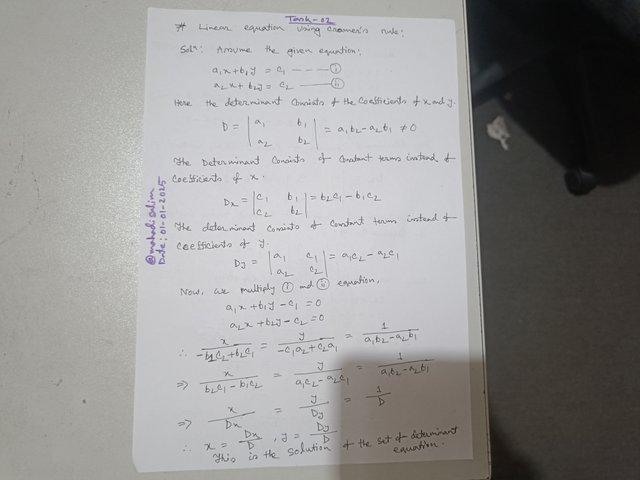 Task-02
# Linear equation using cramer's rule:
Solⁿ: Assume the given equation:
a₁x+b₁y = c₁ --- (i)
a₂x+b₂y = c₂ — (ii)
Here the determinant Consists of the Coefficients of x and y.
D = | a₁ b₁ | = a₁b₂-a₂b₁ ≠ 0
| a₂ b₂ |
The Determinant Consists of Constant terms instead of
Coefficients of x.
Dx = | c₁ b₁ | = b₂c₁ - b₁c₂
| c₂ b₂ |
The determinant Consists of Constant terms instead of
Coefficients of y.
Dy = | a₁ c₁ | = a₁c₂ - a₂c₁
| a₂ c₂ |
Now, we multiply (i) and (ii) equation,
a₁x + b₁y - c₁ = 0
a₂x + b₂y - c₂ = 0
∴ x/(-b₁c₂+b₂c₁) = y/(-c₁a₂+c₂a₁) = 1/(a₁b₂-a₂b₁)
=> x/(b₂c₁-b₁c₂) = y/(a₁c₂-a₂c₁) = 1/(a₁b₂-a₂b₁)
=> x/Dx = y/Dy = 1/D
∴ x = Dx/D , y = Dy/D
This is the solution of the set of determinant
equation.
@mahadi salim
Date: 01-01-2025